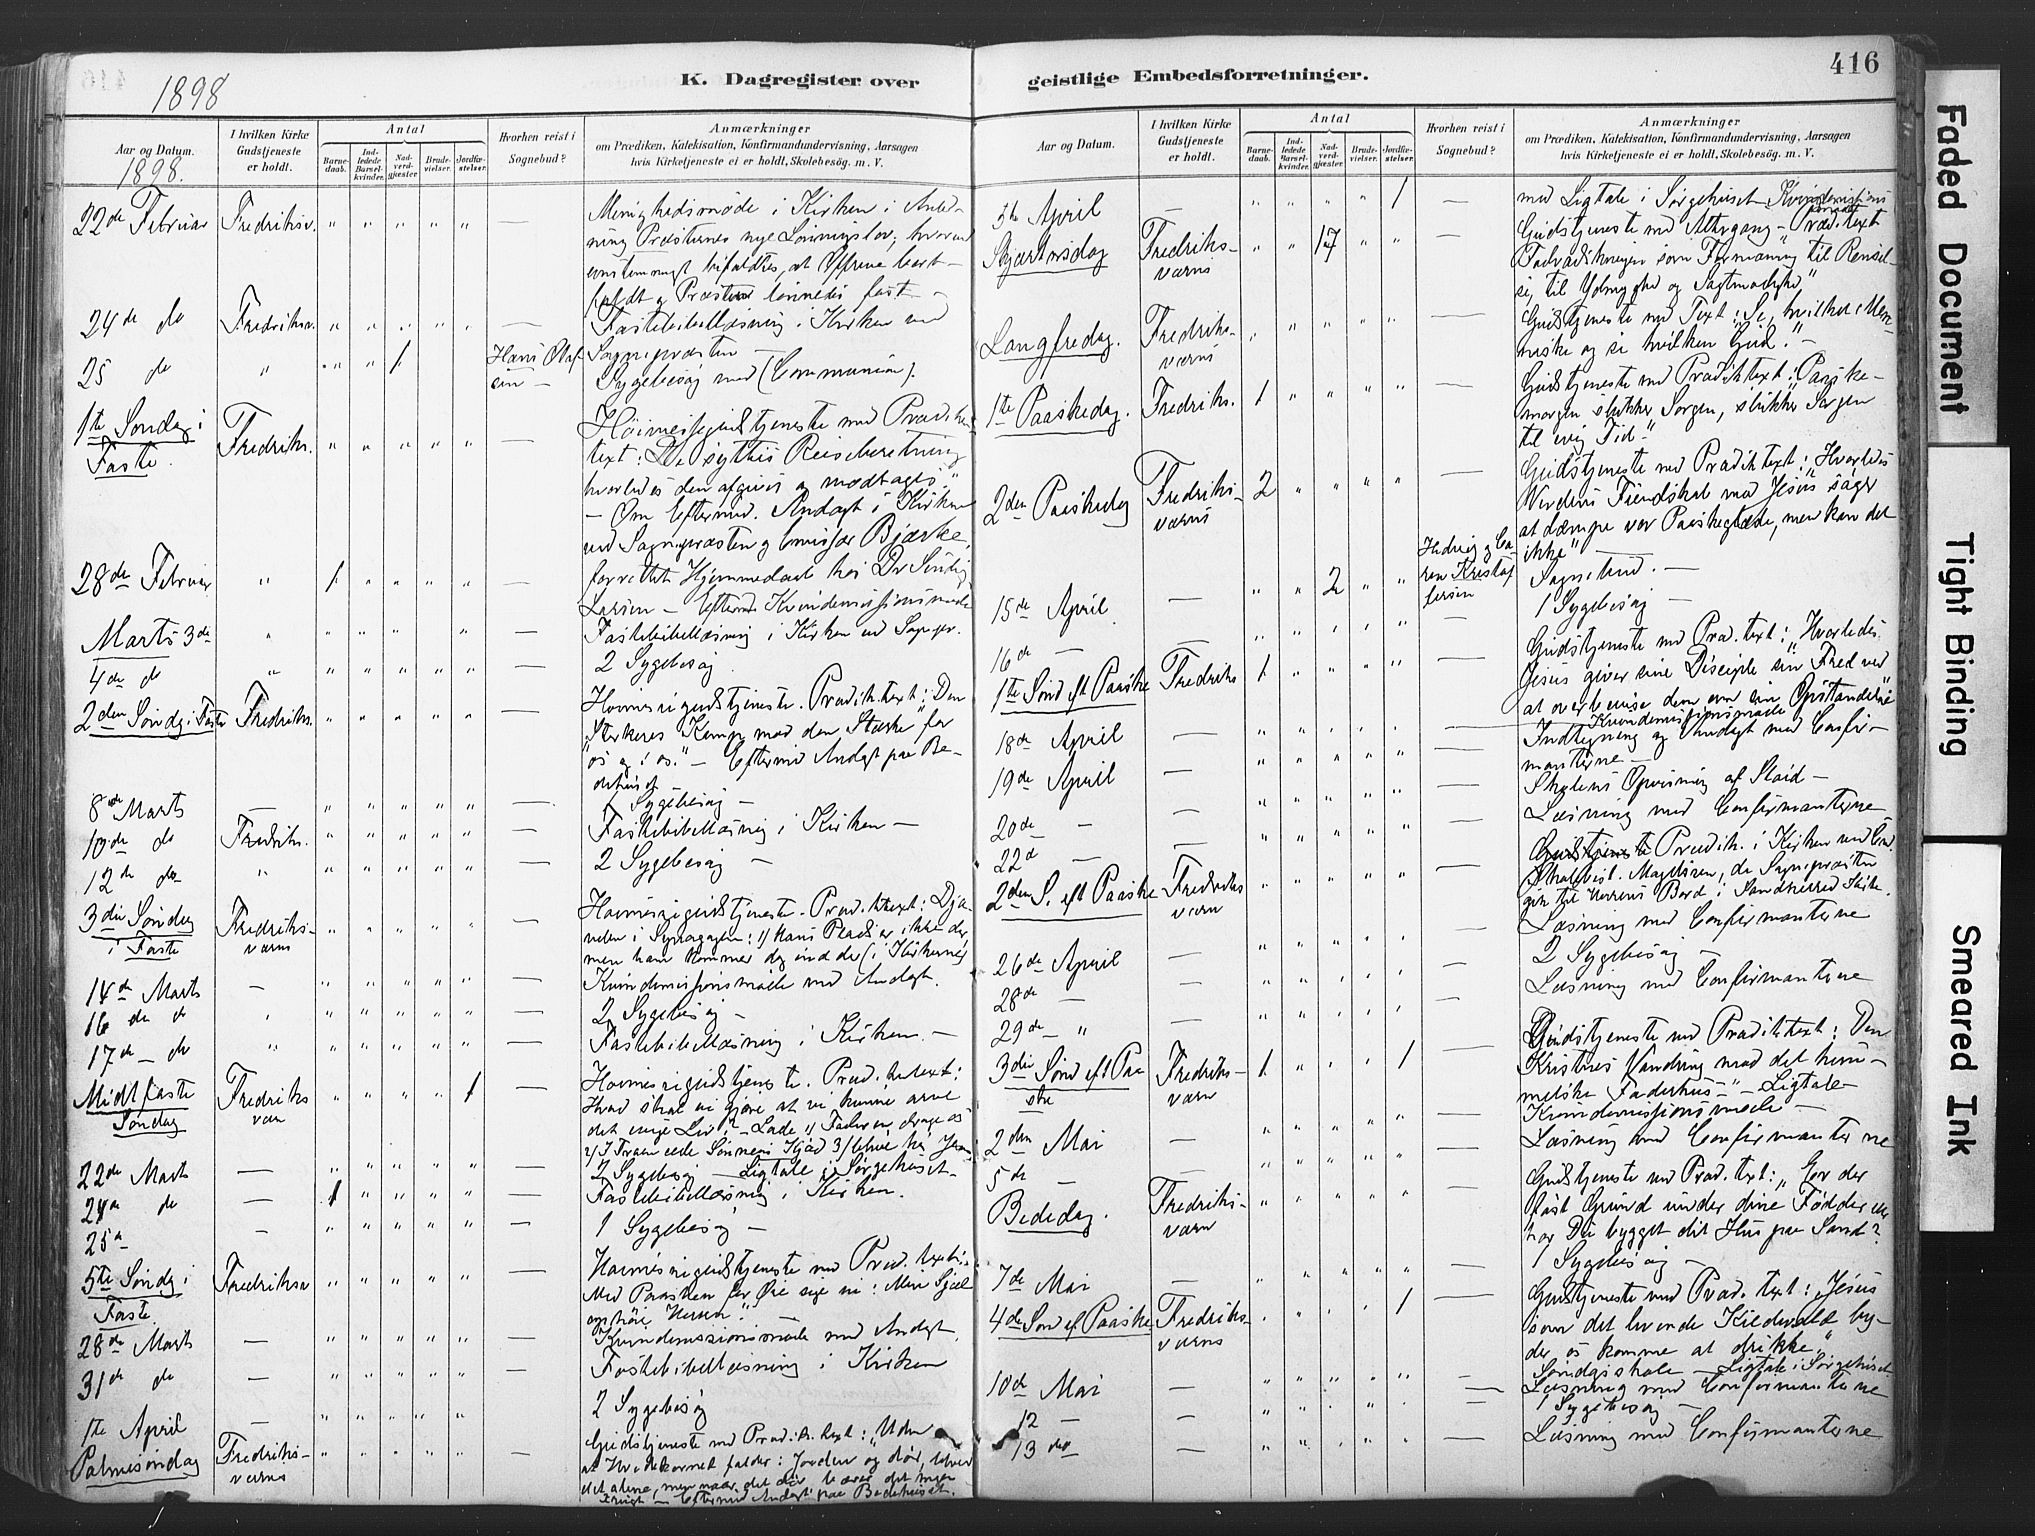 416
1898
K. Dagregister over geistlige Embedsforretninger.
Aar og Datum.
1898.
I hvilken Kirke
Gudstjeneste
er holdt.
Antal
Barne-
daab.
Ind-
ledede
Barsel-
kvinder.
Nad-
verd-
gjæster
Brude-
vielser.
Jordfæ-
stelser.
Hvorhen reist i
Sognebud?
Anmærkninger
om Prædiken, Katekisation, Konfirmandundervisning, Aarsagen
hvis Kirketjeneste ei er holdt, Skolebesøg. m. V.
22de Februar Fredriksv. " " " " " — Menighedsmøde i Kirken i Anled-
ning Præsternes nye Lønningslov, hvorved
enstemmigt bifaldtes, at Offrene bort-
faldt og Præsten lønnedes fast —
24de do Fredriksv. " " " " " — Fastebibellæsning i Kirken ved
Sognepræsten —
25 do " " " " 1 Hans Olaf-
sen — Sygebesøg med (Communion).
1te Søndag i
Faste. Fredriks. " " " " " — Høimessegudstjeneste med Prædike-
text: De syttis Reiseberetning
hvorledes den afgives og modtages."
— Om Eftermid. Andagt i Kirken
ved Sognepræsten og Emissær Bjærke,
28de Februar " 1 " " " " — forrettet Hjemmedaab hos Dr
Larsen — Efterm Kvindemissionsmøde
Marts 3de " " " " " — Fastebibellæsning i Kirken ved Sognepr.
4de do " " " " " — 2 Sygebesøg
2den Søndg i Faste Fredriks. " " " " " — Høimessegudstjeneste. Prædik.text: Den
Sterkeres Kamp mod den Stærke" for
"os og i os." — Eftermid Andagt paa Be-
dehuset
8de Marts — " " " " " — 1 Sygebesøg —
10de do Fredriks. " " " " " — Fastebibellæsning i Kirken —
12de do " " " " " " — 2 Sygebesøg —
3die Søndag
i Faste Fredriks-
værns " " " " " — Høimessegudstjeneste. Præd.text: Djæ-
velen i Synagogen: 1/ Hans Plads er ikke der
men han kommer dog ind der (i Kirkerne)
14de Marts — " " " " " — Kvindemissionsmøde med Andagt.
16 de do " " " " " — 2 Sygebesøg —
17de — do " " " " " — Fastebibellæsning i Kirken. —
Midtfaste
Søndag Fredriks
værn " " " " 1 — Høimessegudstjeneste. Præd.text:
Hvad skal vi gjøre at vi kunne arve
det evige Liv? — Lade 1/ Faderen drage os
2/ I Troen æde Sønnens Kjød 3/ blive hos
22de Marts — " " " " " — 2 Sygebesøg — Ligtale i Sørgehuset —
24de do — 1 " " " " — Fastebibellæsning i Kirken.
25de — " " " " " — 1 Sygebesøg —
5te Søndg i
Faste. Fredriksv " " " " " — Høimessegudstjeneste med Præd. text:
Med Paasken for Øie sige vi: Min Sjæl
ophøie Herren". —
28de Marts — " " " " " — Kvindemissionsmøde med Andagt.
31de do — " " " " " — Fastebibellæsning i Kirken
1te April — " " " " " 2 Sygebesøg
Palmesøndag Fredriks-
værns " " " " " — Gudstjeneste med Prædik. text: "Uden
at Hvedekornet falder i Jorden og dør, bliver
det alene, men naar det dør, bærer det megen
Frugt — Eftermid Andagt paa Bedehuset.
Aar og Datum.
I hvilken Kirke
Gudstjeneste
er holdt.
Antal
Barne-
daab.
Ind-
ledede
Barsel-
kvinder.
Nad-
verd-
gjæster
Brude-
vielser.
Jordfæ-
stelser.
Hvorhen reist i
Sognebud?
Anmærkninger
om Prædiken, Katekisation, Konfirmandundervisning, Aarsagen
hvis Kirketjeneste ei er holdt, Skolebesøg. m. V.
5te April — " " " " 1 — med Ligtale i Sørgehuset. Kvindemissions
Skjærtorsdag Fredriks-
værns " " 17 " " — Gudstjeneste med Altergang — Præd.text
Fodvadskningen som Formaning til Rensel-
se, til Ydmyghed og Sagtmodighed"
Langfredag. Fredriks-
værns " " " " " — Gudstjeneste med Text: Se, hvilket Men-
neske og se hvilken Gud." —
1te Paaskedag. Fredriks. 1 " " " " — Gudstjeneste med Prædiktext: "Paaske-
morgen slukker Sorgen, slukker Sorgen
til evig Tid."
2den Paaskedag Fredriks-
værns 2 " " " " — Gudstjeneste med Prædiktext: "Hvorledes
Verdens Fiendskab mod Jesus" søger
at dæmpe vor Paaskeglæde, men kan det
ikke"
15de April — " " 2 " " Hedvig og Ca-
ren Kristof-
fersen Sognebud. —
16de — " " " " " — 1 Sygebesøg —
1te Sønd eft Paaske Fredriks 1 " " " " — Gudstjeneste med Præd. text: "Hvorledes
Jesus giver sine Disciple sin" Fred ved
at overbevise dem om sin Opstandelse
Kvindemissionsmøde
18de April — " " " " " — Indtegning og Andagt med Confir-
manterne —
19de April — " " " " " — Skolens Opvisning af Sløid —
20de — — " " " " " Læsning med Confirmanterne
22de — — " " " " "
2den S. eft Paaske Fredriks
værn " " " " " — Gudstjeneste Prædik. i Kirken ved
Magelssen, da Sognepræsten
gik til Herrens Bord i Sandherred Kirke.
26de April — " " " " " — Læsning med Confirmanterne
28de — — " " " " " — 2 Sygebesøg —
29de — " — " " " " " — Læsning med Confirmanterne
3die Sønd eft Paa
ske Fredriks-
værn 1 " " " 1 — Gudstjeneste med Prædiktext: Den
Kristnes Vandring mod det him-
melske Faderhus —" — Ligtale —
2den Mai — " " " " " — Kvindemissionsmøde —
5de — — " " " " " Læsning med Confirmanterne
Bededag. Fredriks-
værn " " " " " — Gudstjeneste med Præd. text: "Er der
fast Grund under dine Fødder eller
har Du bygget dit Hus paa Sand?
7de Mai — " " " " " — 1 Sygebesøg —
4de Sønd ef Paaske Fredriks-
værns " " " " 1 — Gudstjeneste med Præd. text: "Jesus
som det levende Kildevæld by-
der os komme at drikke".
Søndagsskole — Ligtale i Sørgehuset
10de Mai — " " " " " — Læsning med Confirmanterne
12 — — " " " " " — 1 Sygebesøg —
13 de — " " " " " — Læsning med Confirmanterne
Faded Document
Tight Binding
Smeared Ink